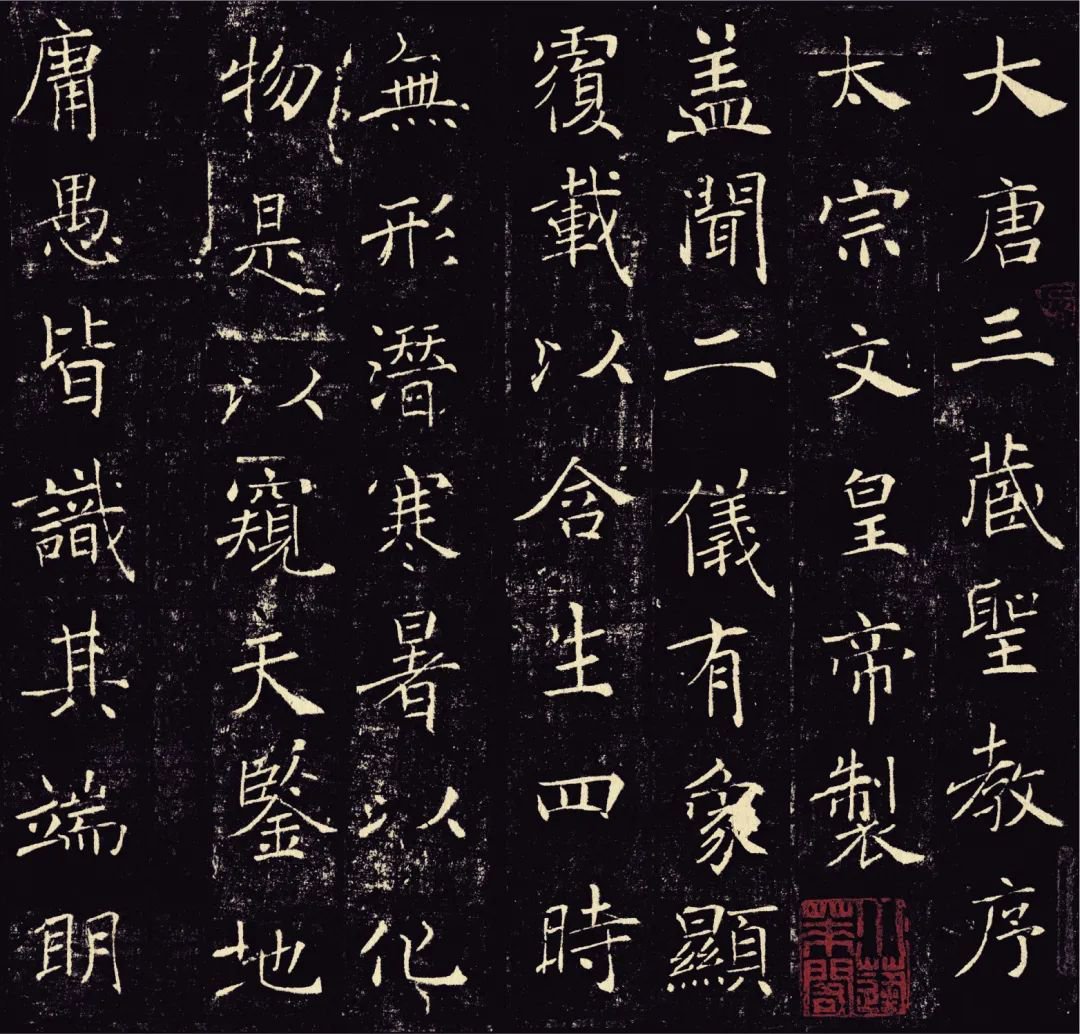 大唐三藏聖教序
太宗文皇帝製
盖聞二儀有象顯
覆載以含生四時
無形潛寒暑以化
物是以窺天鑒地
庸愚皆識其端明